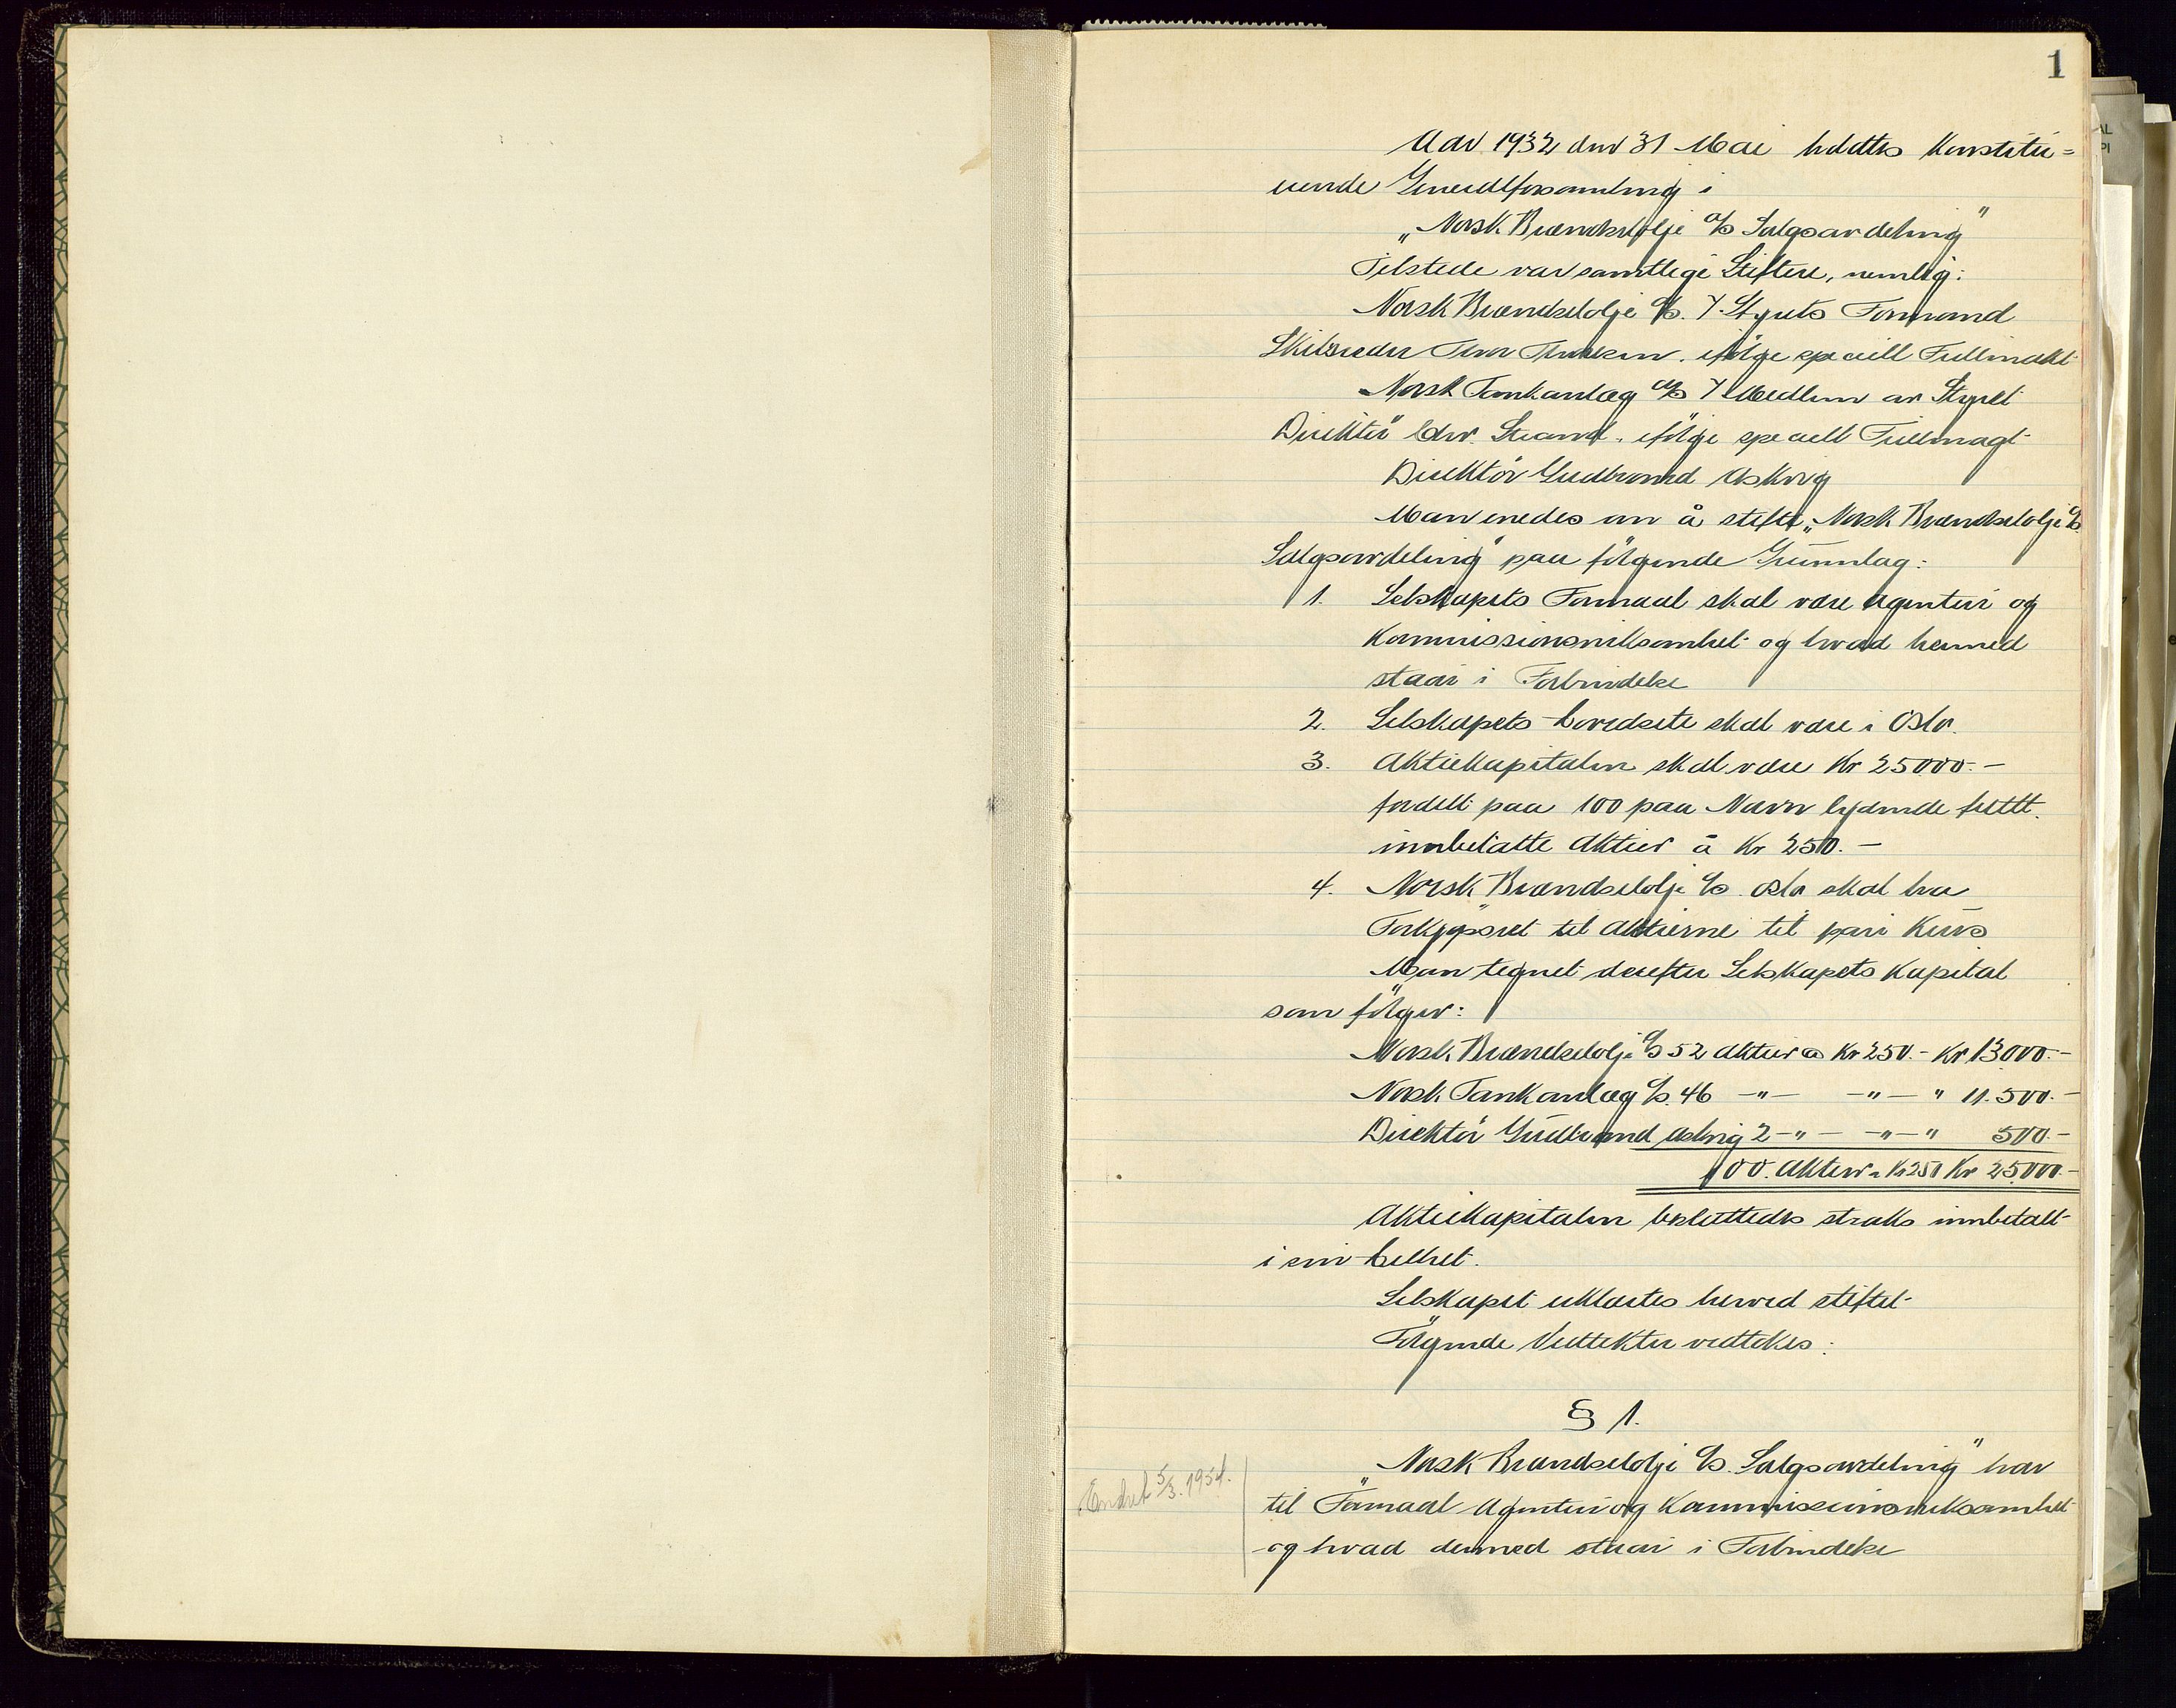 1
Aar 1932 den 31 Mai holdtes Konstitu=
erende Generalforsamling i
„Norsk Brændselolje A/S Salgsavdeling"
Tilstede var samtlige Stiftere, nemlig:
Norsk Brændselolje A/S. v. Styrets Formand
Skibsreder Thor ifølge speciell Fullmakt
Norsk Tankanlæg A/S v. Medlem av Styret
Direktör Edw. Strand. ifölge speciell Fullmagt
Direktör Gudbrand Askvig
Man enedes om å stifte „Norsk Brændselolje A/S
Salgsavdeling" paa fölgende Grunnlag:
1. Selskapets Formaal skal være Agentur og
Kommissionsvirksomhet og hvad hermed
staar i Forbindelse
2. Selskapets Hovedsete skal være i Oslo.
3. Aktiekapitalen skal være Kr 25000.-
fordelt paa 100 paa Navn lydende fullt.
innbetalte Aktier à Kr 250.-
4. Norsk Brændselolje A/S Oslo skal ha
Forkjöpsret til Aktierne til pari Kurs
Man tegnet derefter Selskapets Kapital
som fölger:
Norsk Brændselolje A/S 52 Aktier a Kr 250.- Kr 13000.-
Norsk Tankanlæg A/S. 46 -"- -"- " 11.500.-
Direktör Gudbrand Askvig 2 -"- -"- " 500.-
100. Aktier a Kr 250 Kr 25.000.-
Aktiekapitalen besluttedes straks innbetalt
i sin Helhet.
Selskapet erklærtes herved stiftet
Fölgende Vedtekter vedtokes:
§ 1.
„Norsk Brændselolje A/S. Salgsavdeling" har
til Formaal Agentur og Kommissionsvirksomhet
og hvad dermed staar i Forbindelse
Endret 5/3. 1954.